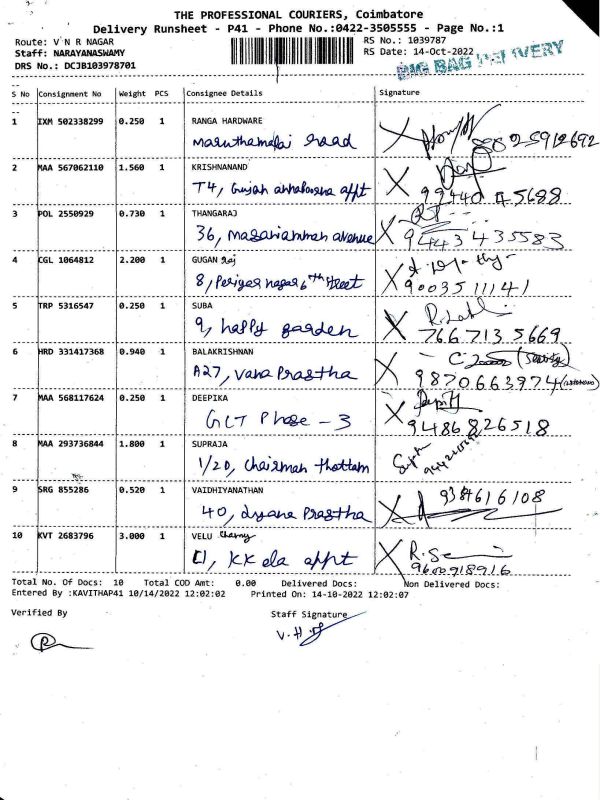 THE PROFESSIONAL COURIERS, Coimbatore
Delivery Runsheet - P41 - Phone No.:0422-3505555 - Page No.:1
Route: V N R NAGAR
Staff: NARAYANASWAMY
DRS No.: DCJB103978701
RS No.: 1039787
RS Date: 14-Oct-2022
BIG BAG DELIVERY
S No Consignment No Weight PCS Consignee Details Signature
1 IXM 502338299 0.250 1 RANGA HARDWARE
Maruthamalai road
2 MAA 567062110 1.560 1 KRISHNANAND
T4, appt 99440 45688
3 POL 2550929 0.730 1 THANGARAJ
36, Masaniamman avenue 9443435583
4 CGL 1064812 2.200 1 GUGAN Raj
8, Periyar nagar 6th Street 9003511141
5 TRP 5316547 0.250 1 SUBA
9, happy garden 7667135669
6 HRD 331417368 0.940 1 BALAKRISHNAN
A27, Vana Prastha 9870663974
7 MAA 568117624 0.250 1 DEEPIKA
GCT Phase - 3 9486826518
8 MAA 293736844 1.800 1 SUPRAJA
1/20, Chairman thottam
9 SRG 855286 0.520 1 VAIDHIYANATHAN
40, Prastha 9384616108
10 KVT 2683796 3.000 1 VELU
C1, KK appt 9600918916
Total No. Of Docs: 10 Total COD Amt: 0.00 Delivered Docs: Non Delivered Docs:
Entered By :KAVITHAP41 10/14/2022 12:02:02 Printed On: 14-10-2022 12:02:07
Verified By Staff Signature